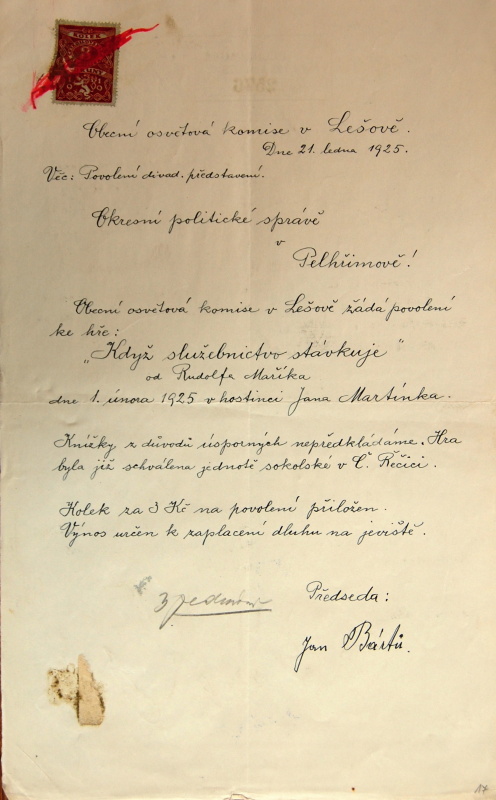 KOLEK
Obecní osvětová komise v Lešově.
Dne 21. ledna 1925.
Věc: Povolení divad. představení.
Okresní politické správě
v
Pelhřimově!
Obecní osvětová komise v Lešově žádá povolení
ke hře:
„Když služebnictvo stávkuje"
od Rudolfa Maříka
dne 1. února 1925 v hostinci Jana Martínka.
Knížky z důvodů úsporných nepředkládáme. Hra
byla již schválena jednotě sokolské v Č. Řečici.
Kolek za 3 Kč na povolení přiložen.
Výnos určen k zaplacení dluhu na jeviště.
Předseda:
Jan Bártů.
17